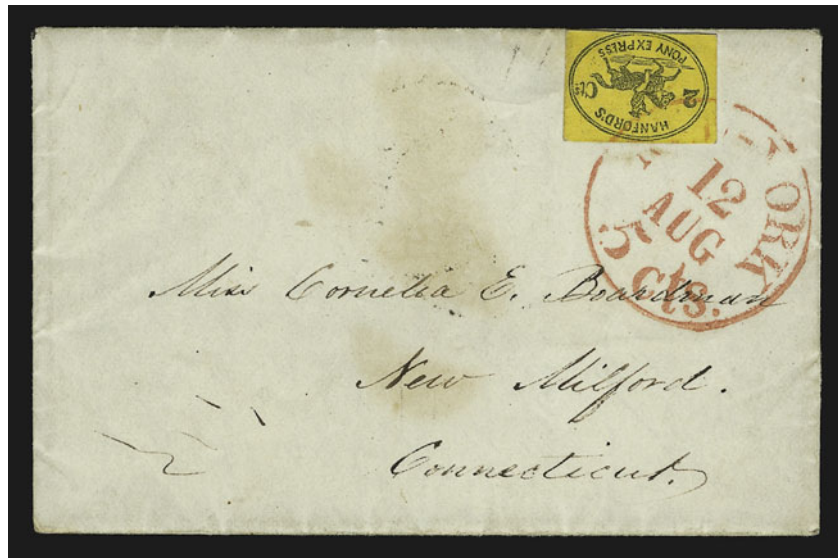 HANFORD'S
2 Cts
PONY EXPRESS
NEW-YORK
12
AUG
5 cts.
Miss Cornelia E. Boardman
New Milford.
Connecticut.